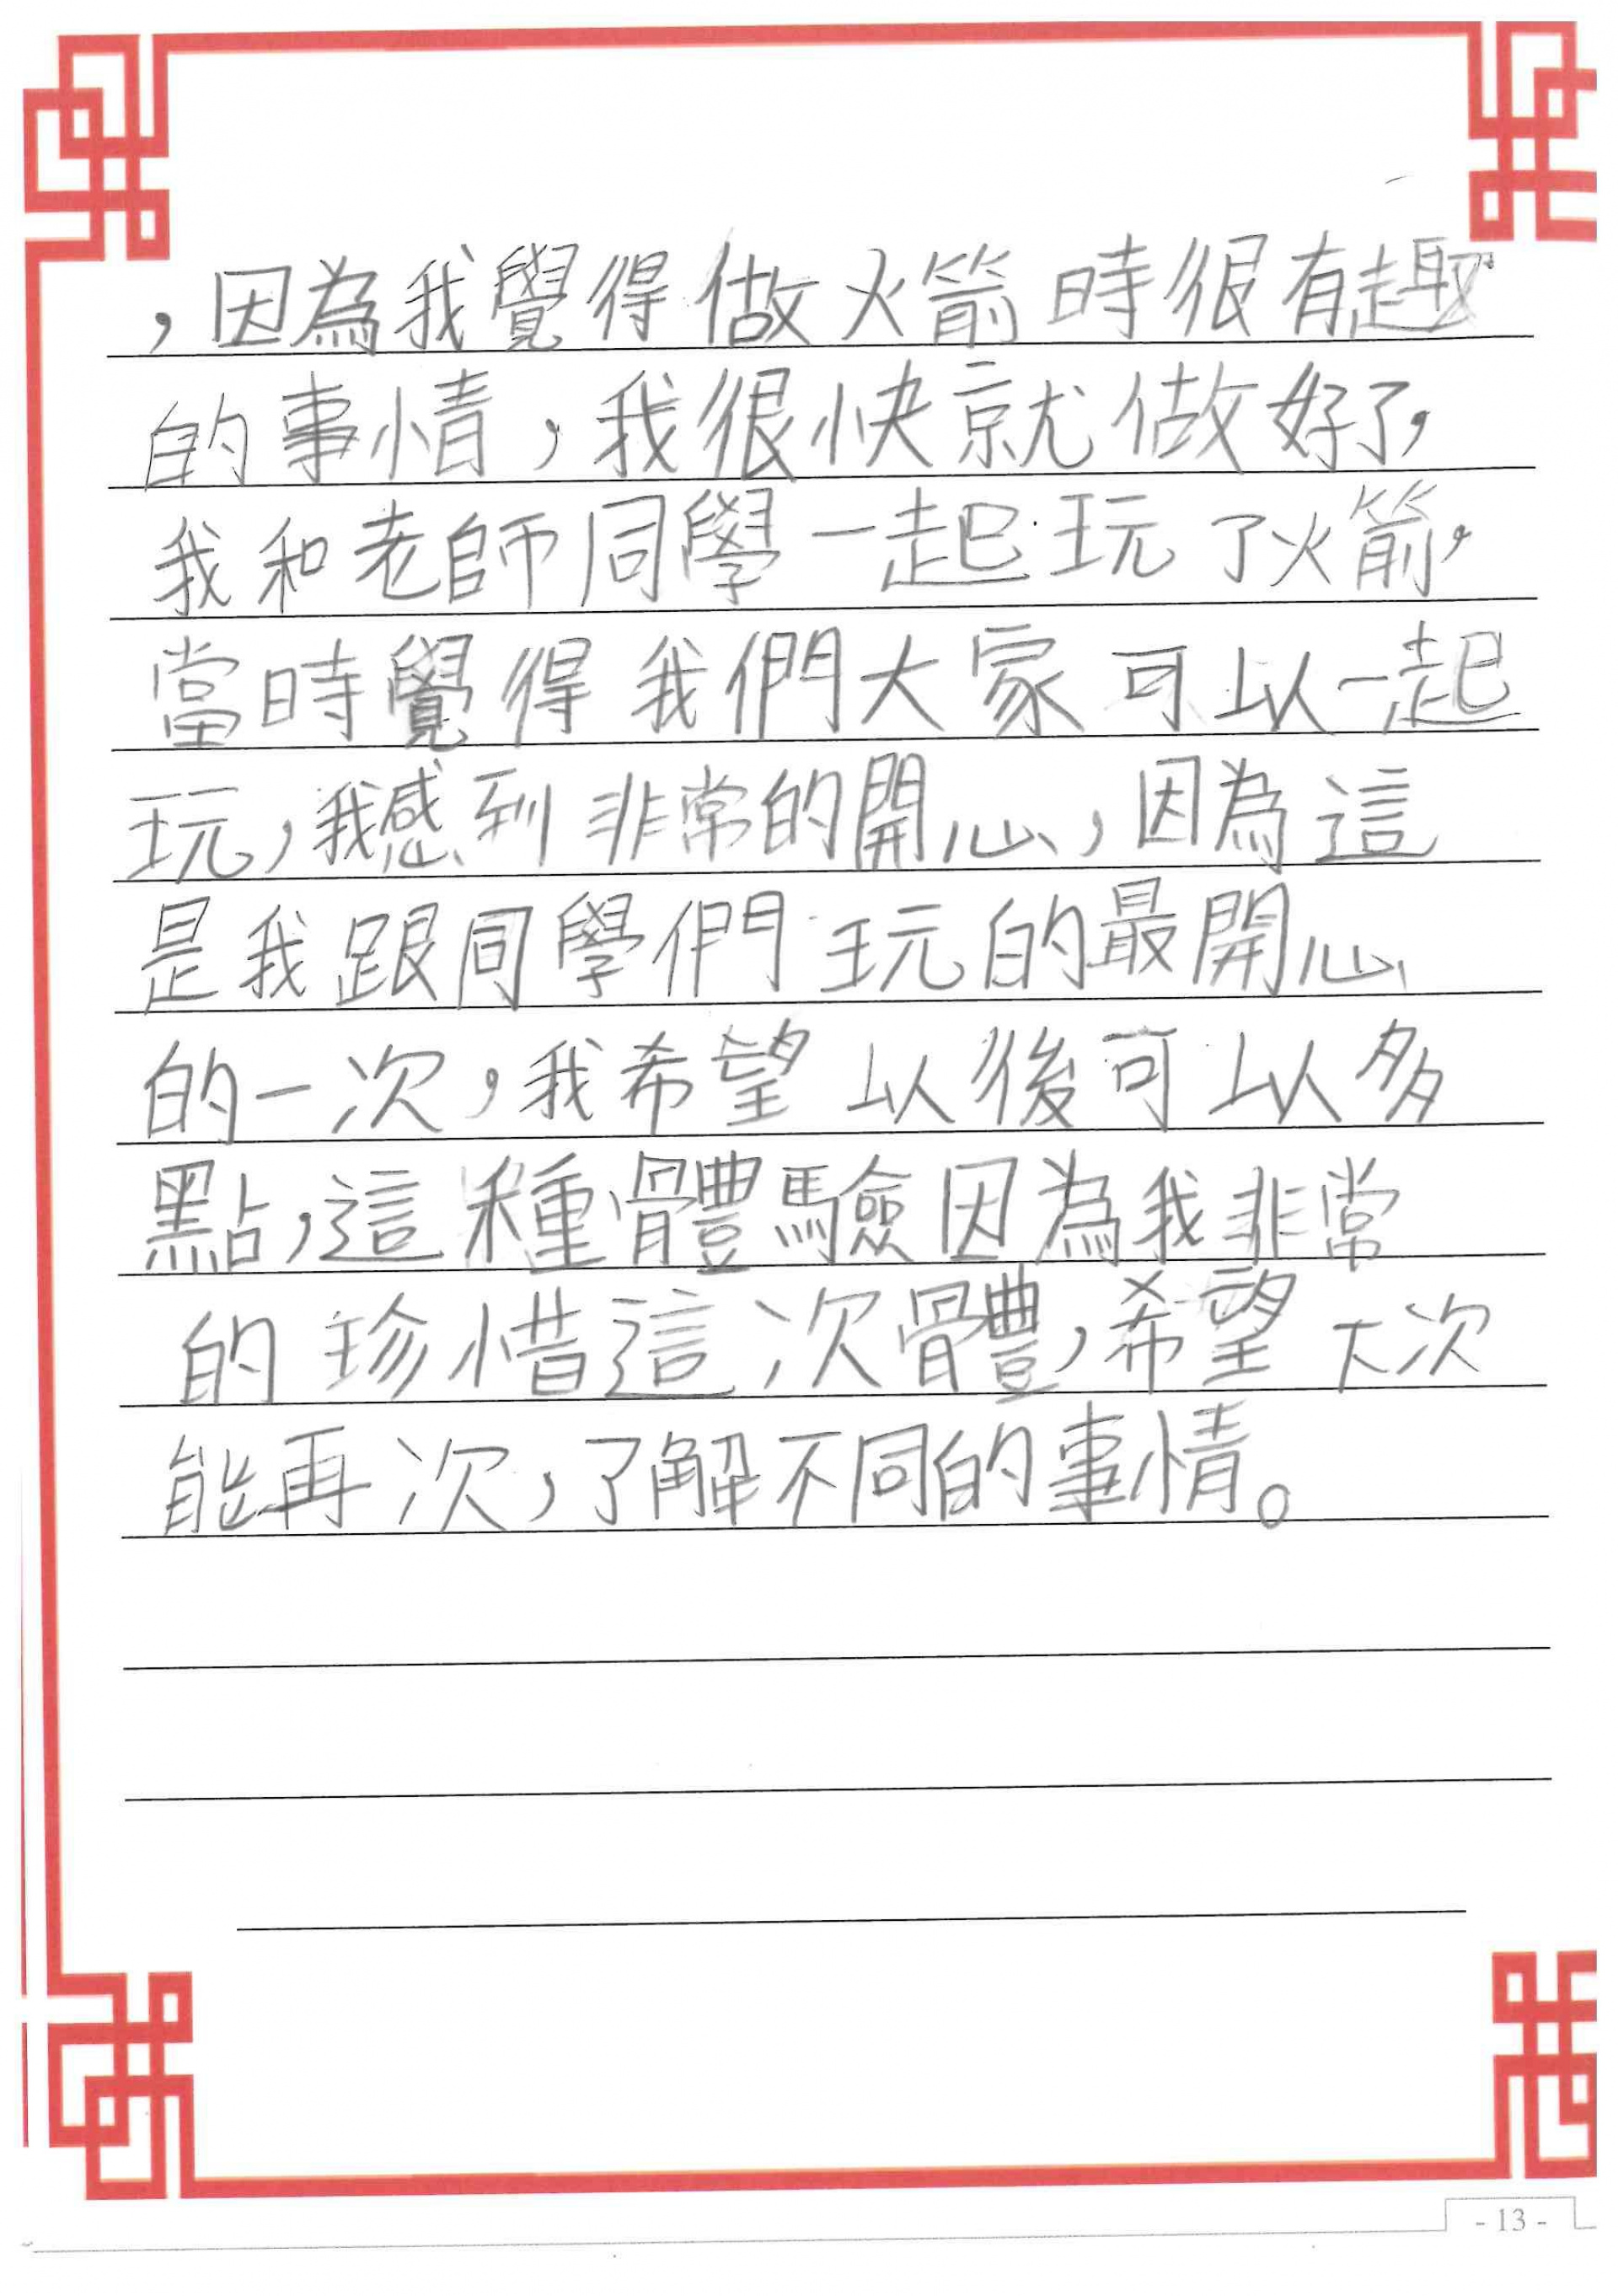 ，因為我覺得做火箭時很有趣
的事情，我很快就做好了，
我和老師同學一起玩了火箭，
當時覺得我們大家可以一起
玩，我感到非常的開心，因為這
是我跟同學們玩的最開心
的一次，我希望以後可以多
點，這種體驗因為我非常
的珍惜這次體，希望下次
能再次，了解不同的事情。
- 13 -